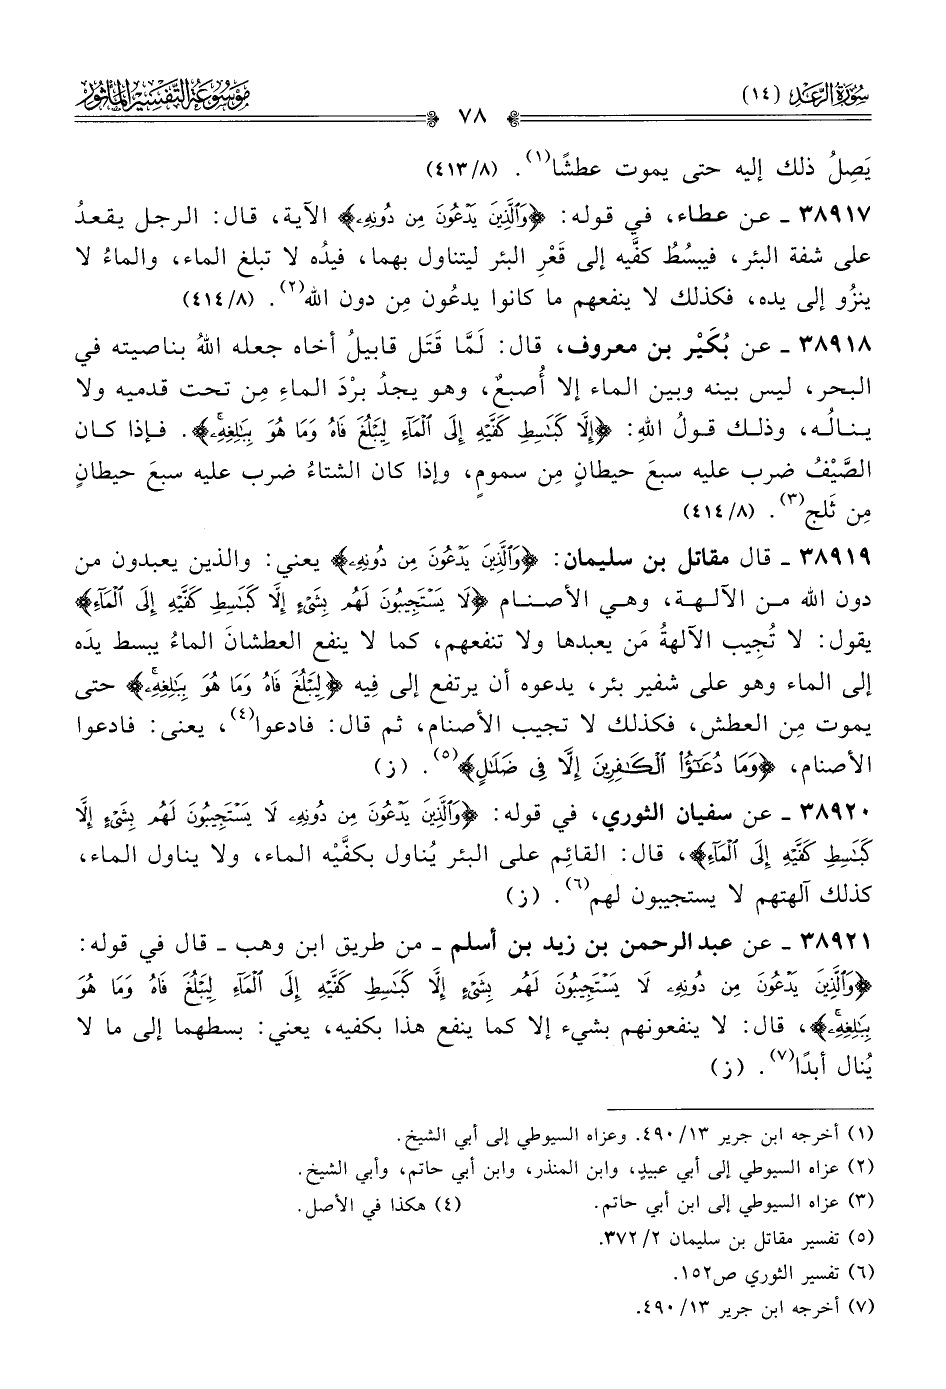 سُورَةُ الرَّعْدِ (١٤)
موسوعة التفسير المأثور
٧٨
يَصِلُ ذلك إليه حتى يموت عطشًا(١). (٤١٣/٨)
٣٨٩١٧ ـ عن عطاء، في قوله: ﴿وَٱلَّذِينَ يَدْعُونَ مِن دُونِهِۦ﴾ الآية، قال: الرجل يقعدُ
على شفة البئر، فيبسُطُ كفَّيه إلى قَعْرِ البئر ليتناول بهما، فيدُه لا تبلغ الماء، والماءُ لا
ينزُو إلى يده، فكذلك لا ينفعهم ما كانوا يدعُون مِن دون الله(٢). (٤١٤/٨)
٣٨٩١٨ ـ عن بُكَيْر بن معروف، قال: لَمَّا قَتَل قابيلُ أخاه جعله اللهُ بناصيته في
البحر، ليس بينه وبين الماء إلا أُصبعٌ، وهو يجدُ برْدَ الماءِ مِن تحت قدميه ولا
ينالُه، وذلك قولُ اللهِ: ﴿إِلَّا كَبَـٰسِطِ كَفَّيْهِ إِلَى ٱلْمَآءِ لِيَبْلُغَ فَاهُ وَمَا هُوَ بِبَـٰلِغِهِۦۚ﴾. فإذا كان
الصَّيْفُ ضرب عليه سبعَ حيطانٍ مِن سمومٍ، وإذا كان الشتاءُ ضرب عليه سبعَ حيطانٍ
مِن ثَلج(٣). (٤١٤/٨)
٣٨٩١٩ ـ قال مقاتل بن سليمان: ﴿وَٱلَّذِينَ يَدْعُونَ مِن دُونِهِۦ﴾ يعني: والذين يعبدون من
دون الله من الآلهة، وهي الأصنام ﴿لَا يَسْتَجِيبُونَ لَهُم بِشَىْءٍ إِلَّا كَبَـٰسِطِ كَفَّيْهِ إِلَى ٱلْمَآءِ﴾
يقول: لا تُجِيب الآلهةُ مَن يعبدها ولا تنفعهم، كما لا ينفع العطشانَ الماءُ يبسط يدَه
إلى الماء وهو على شفير بئر، يدعوه أن يرتفع إلى فِيه ﴿لِيَبْلُغَ فَاهُ وَمَا هُوَ بِبَـٰلِغِهِۦۚ﴾ حتى
يموت مِن العطش، فكذلك لا تجيب الأصنام، ثم قال: فادعوا(٤)، يعني: فادعوا
الأصنام، ﴿وَمَا دُعَـٰٓؤُا۟ ٱلْكَـٰفِرِينَ إِلَّا فِى ضَلَـٰلٍ﴾(٥). (ز)
٣٨٩٢٠ ـ عن سفيان الثوري، في قوله: ﴿وَٱلَّذِينَ يَدْعُونَ مِن دُونِهِۦ لَا يَسْتَجِيبُونَ لَهُم بِشَىْءٍ إِلَّا
كَبَـٰسِطِ كَفَّيْهِ إِلَى ٱلْمَآءِ﴾، قال: القائِم على البئر يُناول بكفَّيْه الماء، ولا يناول الماء،
كذلك آلهتهم لا يستجيبون لهم(٦). (ز)
٣٨٩٢١ ـ عن عبدالرحمن بن زيد بن أسلم ـ من طريق ابن وهب ـ قال في قوله:
﴿وَٱلَّذِينَ يَدْعُونَ مِن دُونِهِۦ لَا يَسْتَجِيبُونَ لَهُم بِشَىْءٍ إِلَّا كَبَـٰسِطِ كَفَّيْهِ إِلَى ٱلْمَآءِ لِيَبْلُغَ فَاهُ وَمَا هُوَ
بِبَـٰلِغِهِۦۚ﴾، قال: لا ينفعونهم بشيء إلا كما ينفع هذا بكفيه، يعني: بسطهما إلى ما لا
يُنال أبدًا(٧). (ز)
(١) أخرجه ابن جرير ١٣/ ٤٩٠. وعزاه السيوطي إلى أبي الشيخ.
(٢) عزاه السيوطي إلى أبي عبيدٍ، وابن المنذر، وابن أبي حاتم، وأبي الشيخ.
(٣) عزاه السيوطي إلى ابن أبي حاتم. (٤) هكذا في الأصل.
(٥) تفسير مقاتل بن سليمان ٢/ ٣٧٢.
(٦) تفسير الثوري ص١٥٢.
(٧) أخرجه ابن جرير ١٣/ ٤٩٠.